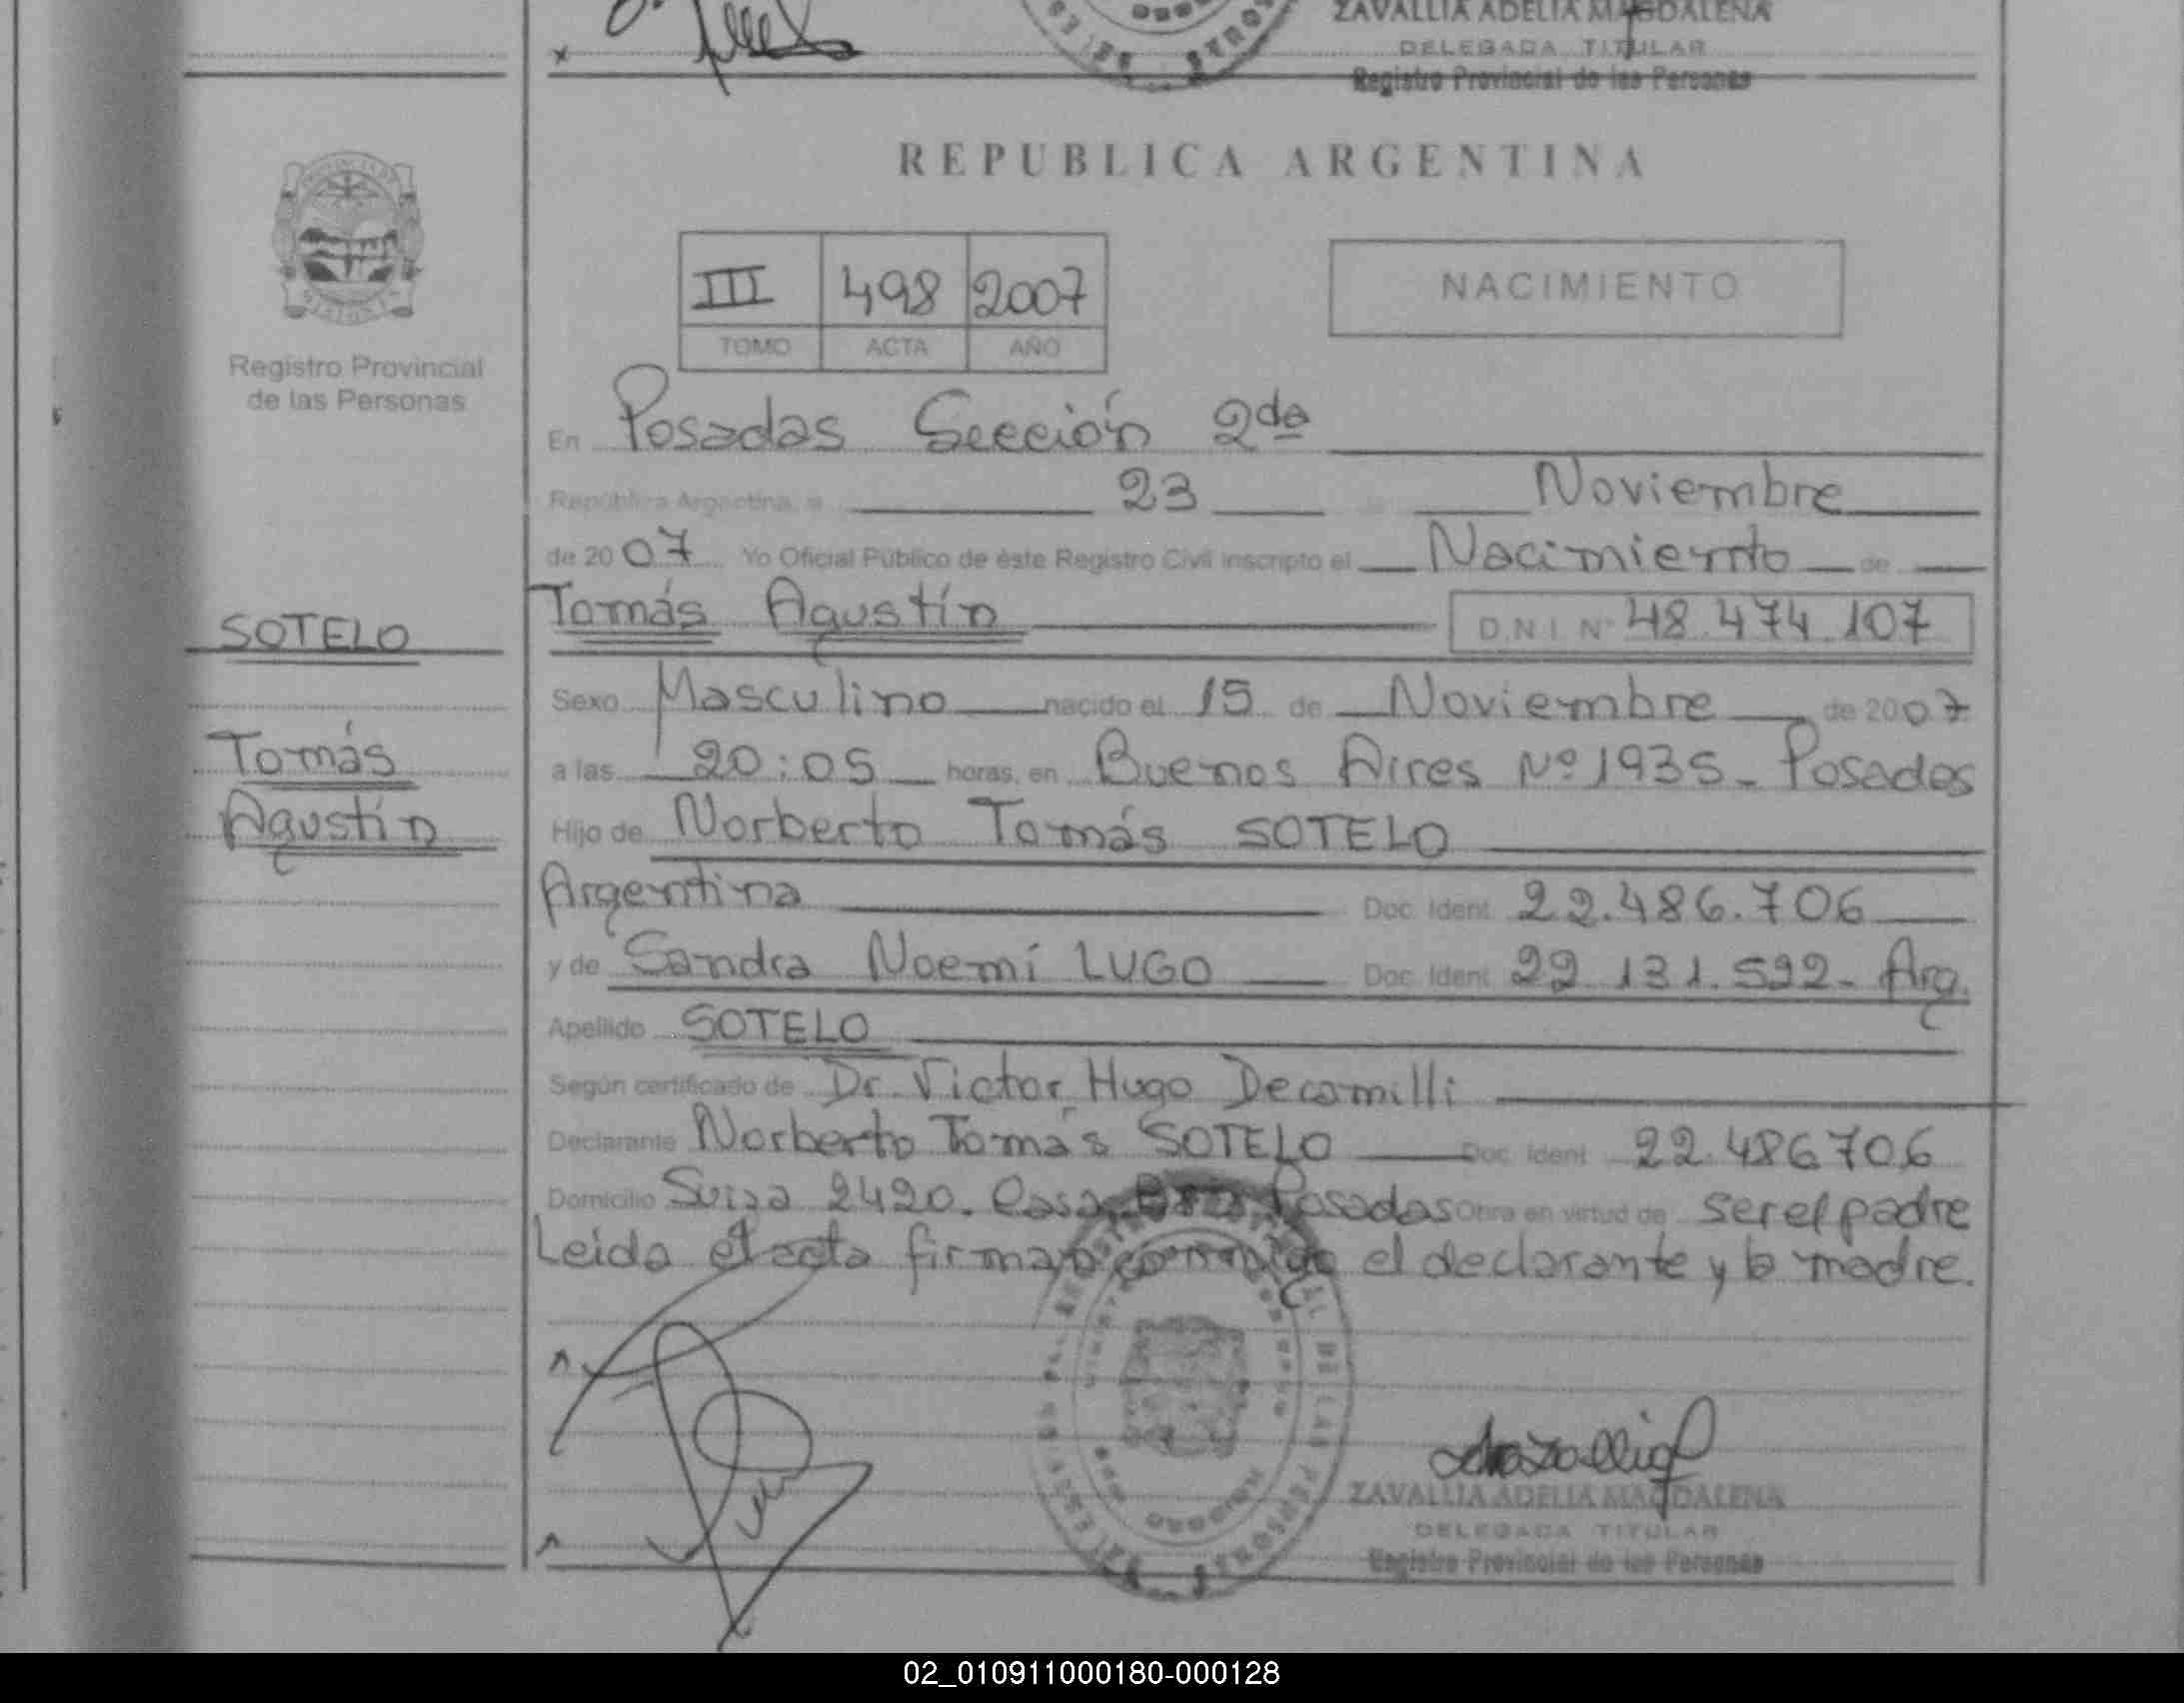 ZAVALLIA ADELIA MAGDALENA
DELEGADA TITULAR
Registro Provincial de las Personas
REPUBLICA ARGENTINA
III 498 2007
TOMO ACTA AÑO
NACIMIENTO
Registro Provincial
de las Personas
En Posadas Sección 2da
República Argentina, a 23 Noviembre
de 2007 Yo Oficial Público de éste Registro Civil inscripto el Nacimiento de
Tomás Agustín D.N.I. Nº 48.474.107
SOTELO
Tomás
Agustín
Sexo Masculino nacido el 15 de Noviembre de 2007
a las 20:05 horas, en Buenos Aires Nº 1935- Posadas
Hijo de Norberto Tomás SOTELO
Argentina Doc. Ident. 22.486.706
y de Sandra Noemí LUGO Doc. Ident. 22.131.522- Arg.
Apellido SOTELO
Según certificado de Dr. Victor Hugo Decamilli
Declarante Norberto Tomás SOTELO Doc. Ident. 22.486706
Domicilio Suiza 2420. Casa Posadas Obra en virtud de ser el padre
Leida el acta firman conmigo el declarante y la madre.
ZAVALLIA ADELIA MAGDALENA
DELEGADA TITULAR
Registro Provincial de las Personas
02_010911000180-000128